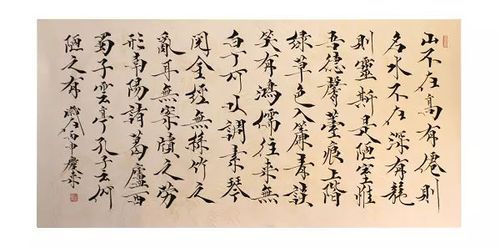 山不在高有僊則
名水不在深有龍
則靈斯是陋室惟
吾德馨苔痕上階
綠草色入簾青談
笑有鴻儒往來無
白丁可以調素琴
閱金經無絲竹之
亂耳無案牘之勞
形南陽諸葛廬西
蜀子雲亭孔子云何
陋之有